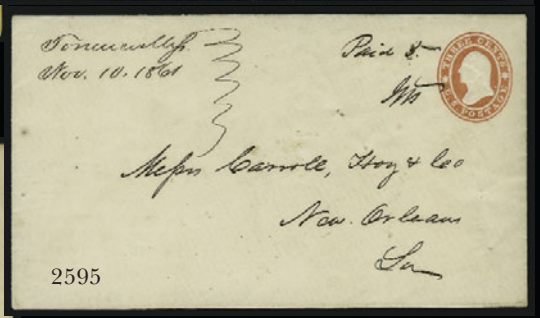 Nov. 10. 1861
Paid 5
THREE CENTS
U.S. POSTAGE
Messrs Carroll, Hoy & Co
New. Orleans
La
2595